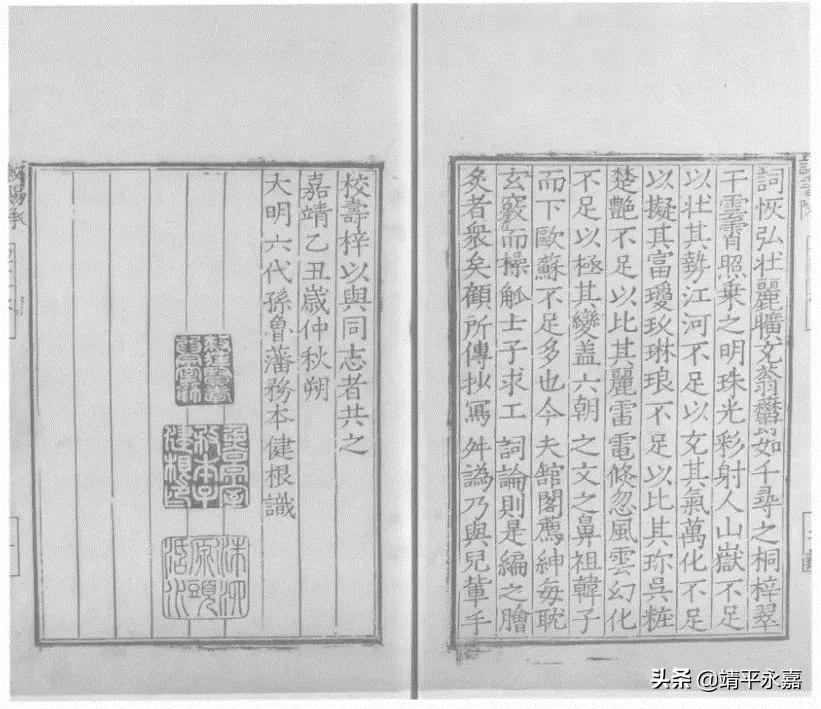 詞恢弘壯麗曠㝸蓊欝如千尋之桐梓翠
干雲霄照乗之明珠光彩射人山嶽不足
以壮其勢江河不足以充其氣萬化不足
以擬其富璦玟琳琅不足以比其珎呉粧
楚艷不足以比其麗雷電倏忽風雲幻化
不足以極其變盖六朝之文之鼻祖韓子
而下歐蘇不足多也今夫舘閣薦紳每耽
玄竅而操觚士子求工詞論則是編之膾
炙者衆矣顧所傳抄寫舛譌乃與兒輩手
校壽梓以與同志者共之
嘉靖乙丑歲仲秋朔
大明六代孫魯藩務本健根識
头条 @靖平永嘉